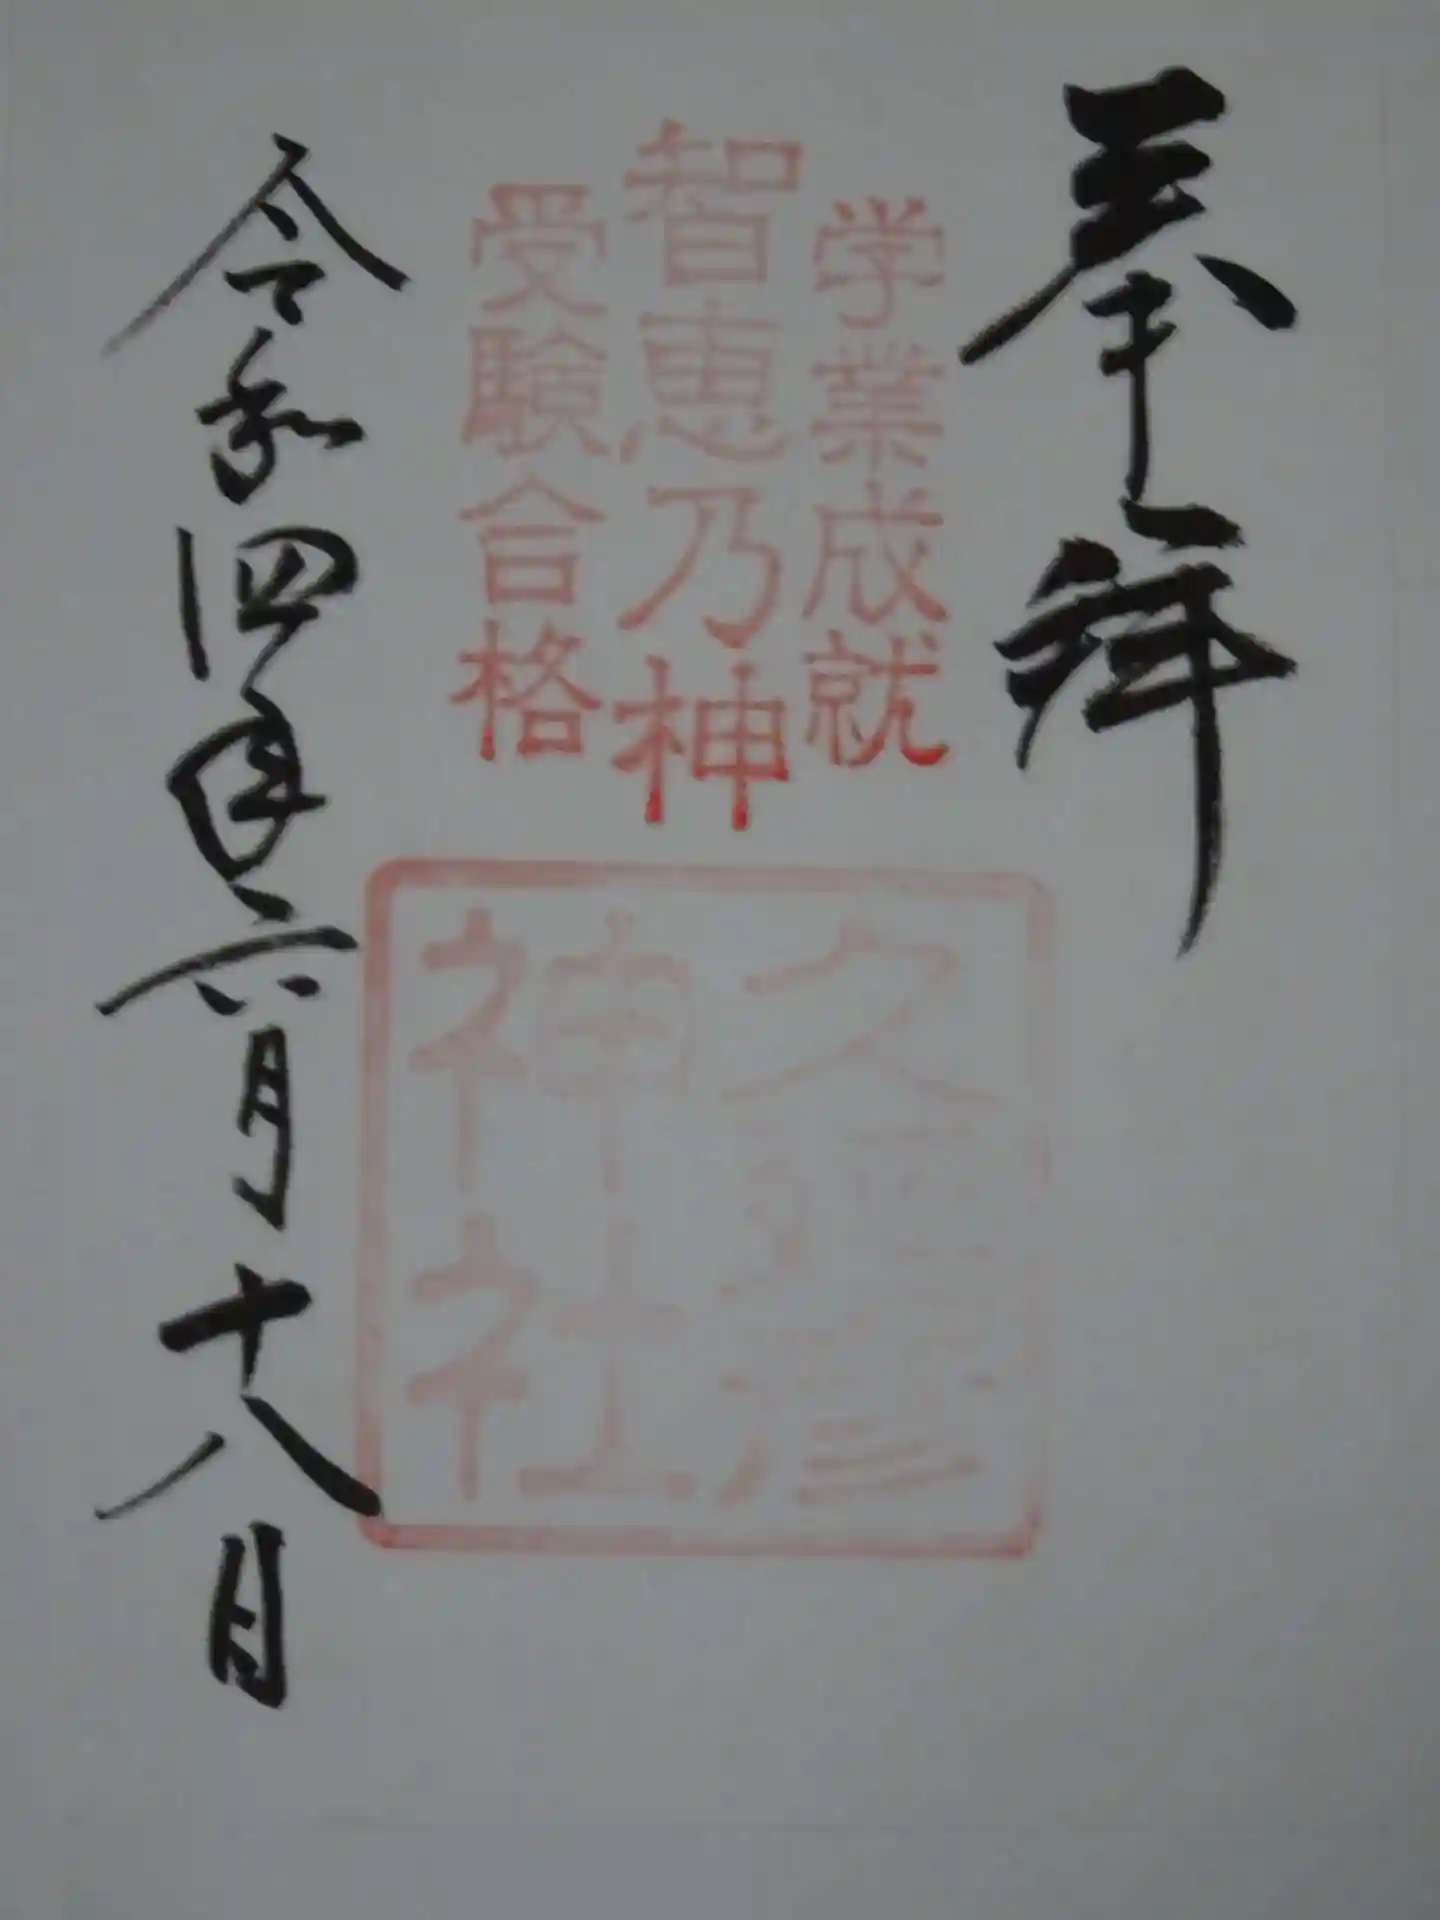 奉拝
学業成就
智恵乃神
受験合格
久彌彦
神社
令和四年六月十八日